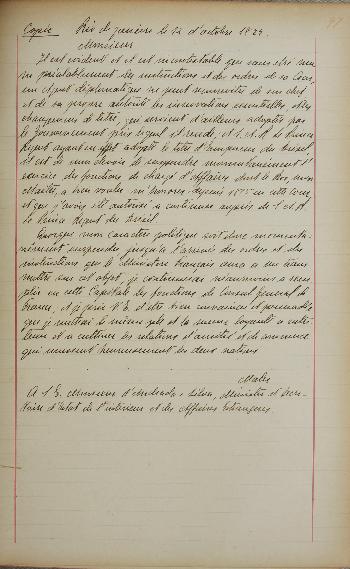 Copie Rio de Janeiro le 24 d'octobre 1822.
Monsieur
Il est evident et il est incontestable que sans être muni
préalablement des instructions et des ordres de sa Cour,
un agent diplomatique ne peut reconnaître de son chef
et de sa propre autorité les innovations eventuelles et les
changemens de titre, qui seraient d'ailleurs adoptés par
le Gouvernement près lequel il reside, et S. A. R. le Prince
Regent ayant en effet adopté le titre d'Empereur du Brésil
il est de mon devoir de suspendre momentanément l'
exercice des fonctions de chargé d'affaires dont le Roi, mon
Maître, a bien voulu m'honorer depuis 1815 en cette Cour,
et que j'avois été autorisé a continuer auprès de S. A. R.
le Prince Regent du Brésil.
Quoique mon caractère politique soit donc momenta-
nément suspendu, jusqu'a l'arrivée des ordres et des
instructions que le Ministère français aura a me trans-
mettre sur cet objet, je continuerai néanmoins a rem-
plir en cette Capitale les fonctions de Consul General de
France, et je prie V. E. d'être bien convaincu et persuadée
que je mettrai le même zèle et la même loyauté a entre-
tenir et a cultiver les relations d'amitié et de commerce
qui unissent heureusement les deux nations
Maler
A S. E. Monsieur d'Andrada e Silva, Ministre et Secre-
taire d'état de l'intérieur et des Affaires Etrangères.